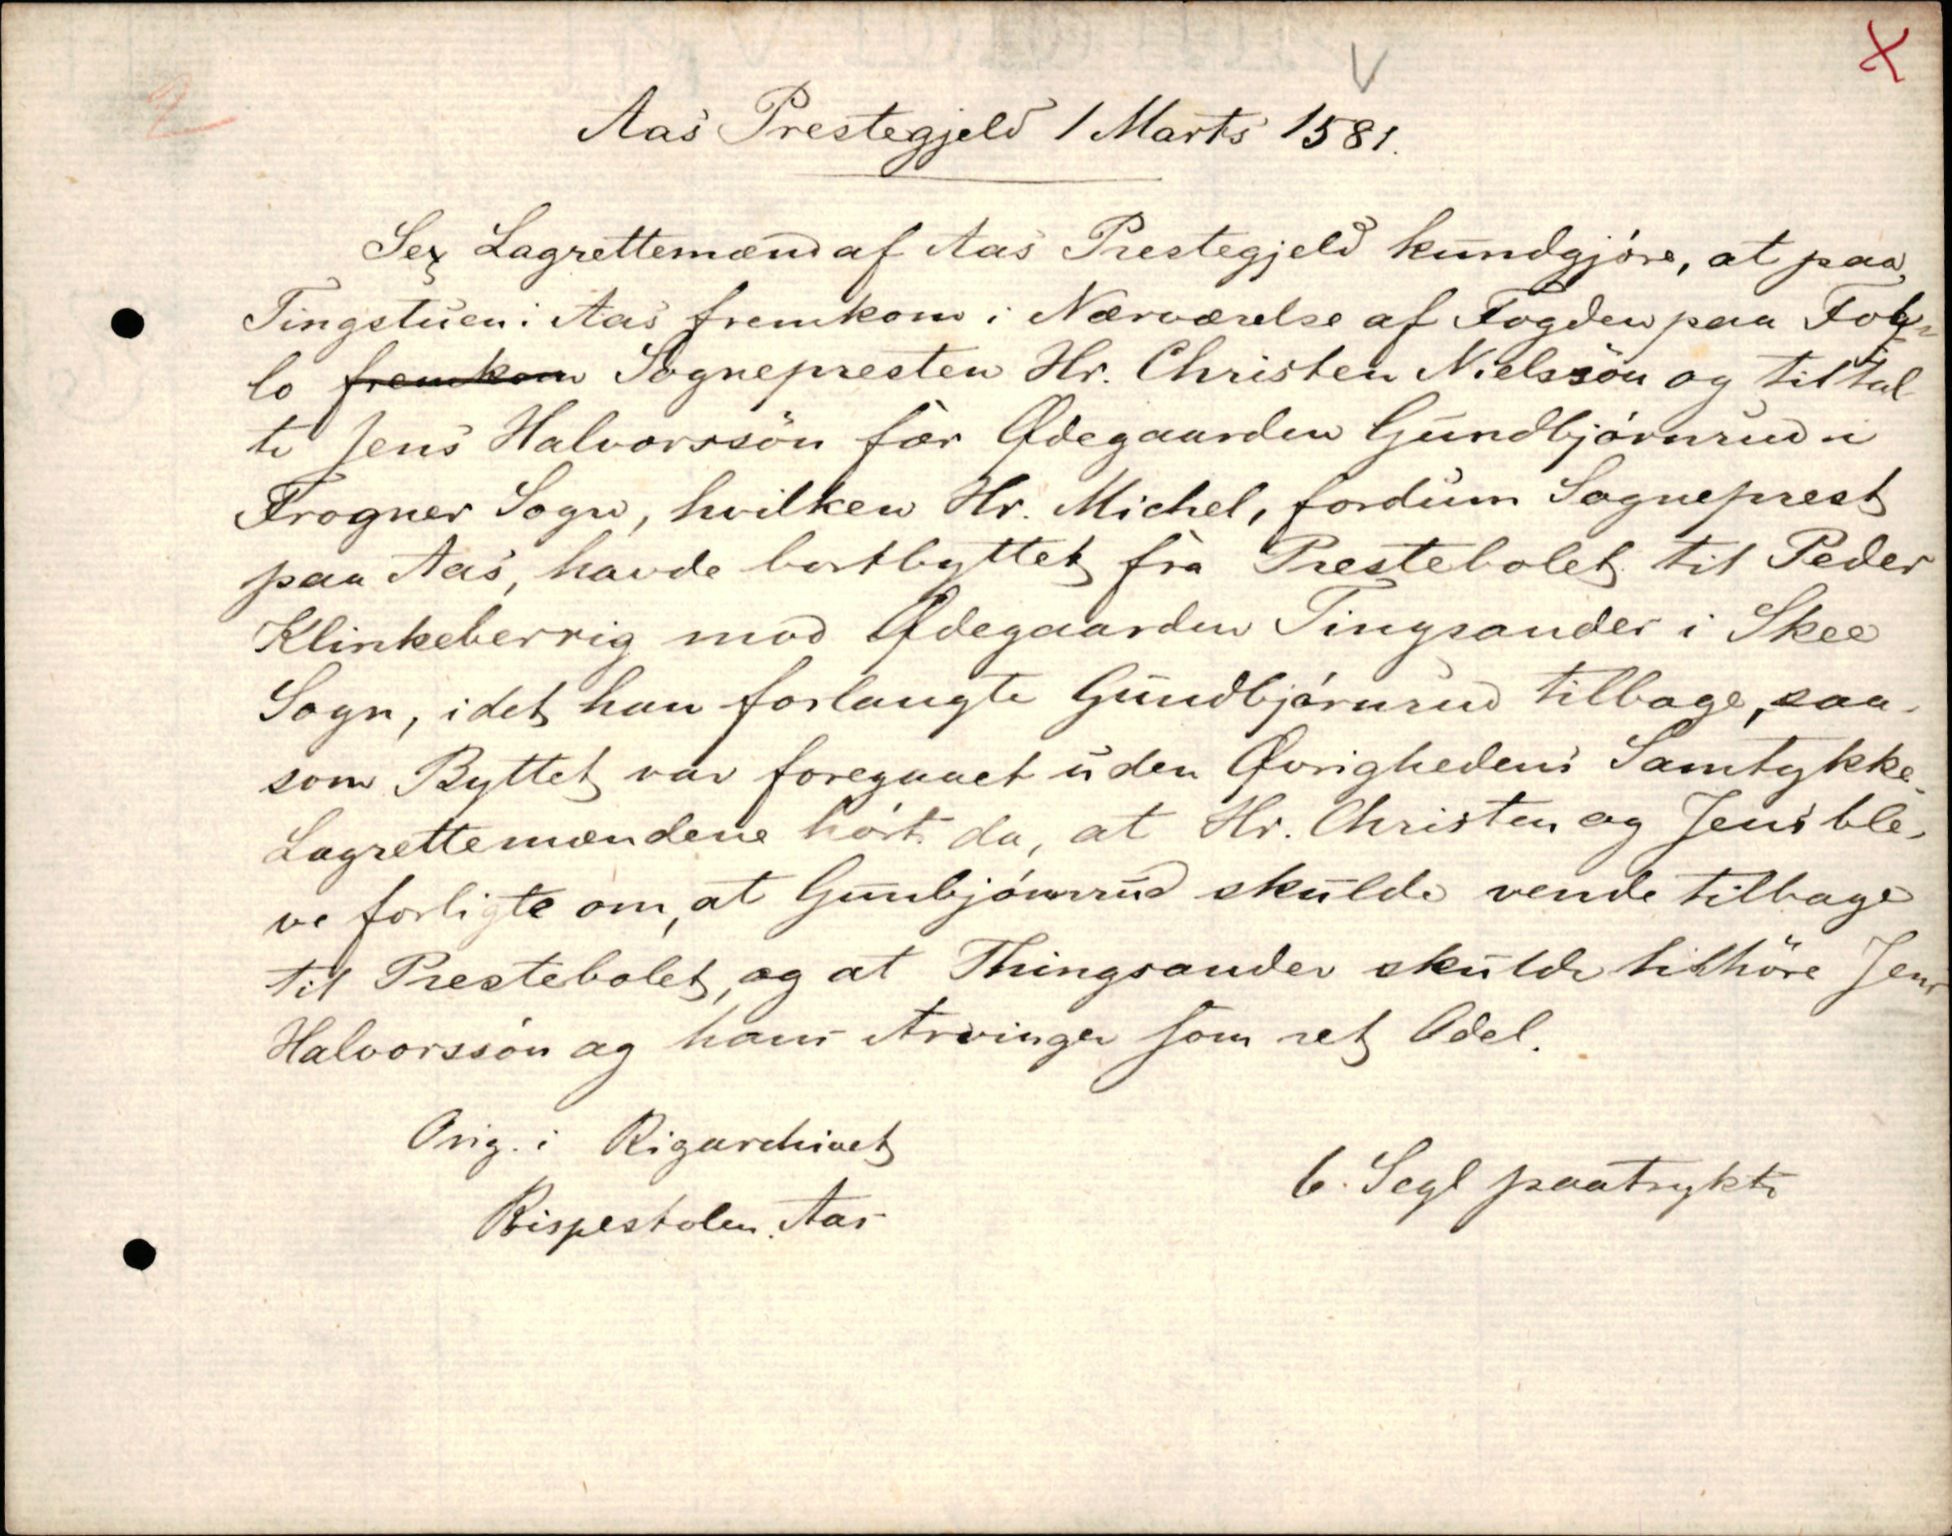 Aas Prestegjeld 1 Marts 1581.
Sex Lagrettemænd af Aas Prestegjeld kundgjøre, at paa
Tingstuen i Aas fremkom i Nærværelse af Fogden paa Fol-
lo fremkom Sognepresten Hr. Christen Nielssön og tiltal
te Jens Halvorssön for Ødegaarden Gundbjørnrud i
Frogner Sogn, hvilken Hr. Michel, fordum Sogneprest
paa Aas, havde bortbyttet fra Prestebolet til Peder
Klinkeberrig mod Ødegaarden Tingsander i Skee
Sogn, idet han forlangte Gundbjørnrud tilbage, saa-
som Byttet var foregaaet uden Øvrighedens Samtykke.
Lagrettemændene hørte da, at Hr. Christen og Jens ble-
ve forligte om, at Gunbjørnrud skulde vende tilbage
til Prestebolet, og at Thingsander skulde tilhöre Jens
Halvorssøn og hans Arvinger som ret Odel.
Orig. i Rigarchivet
Bispestolen. Aas
6. Segl paatrykte